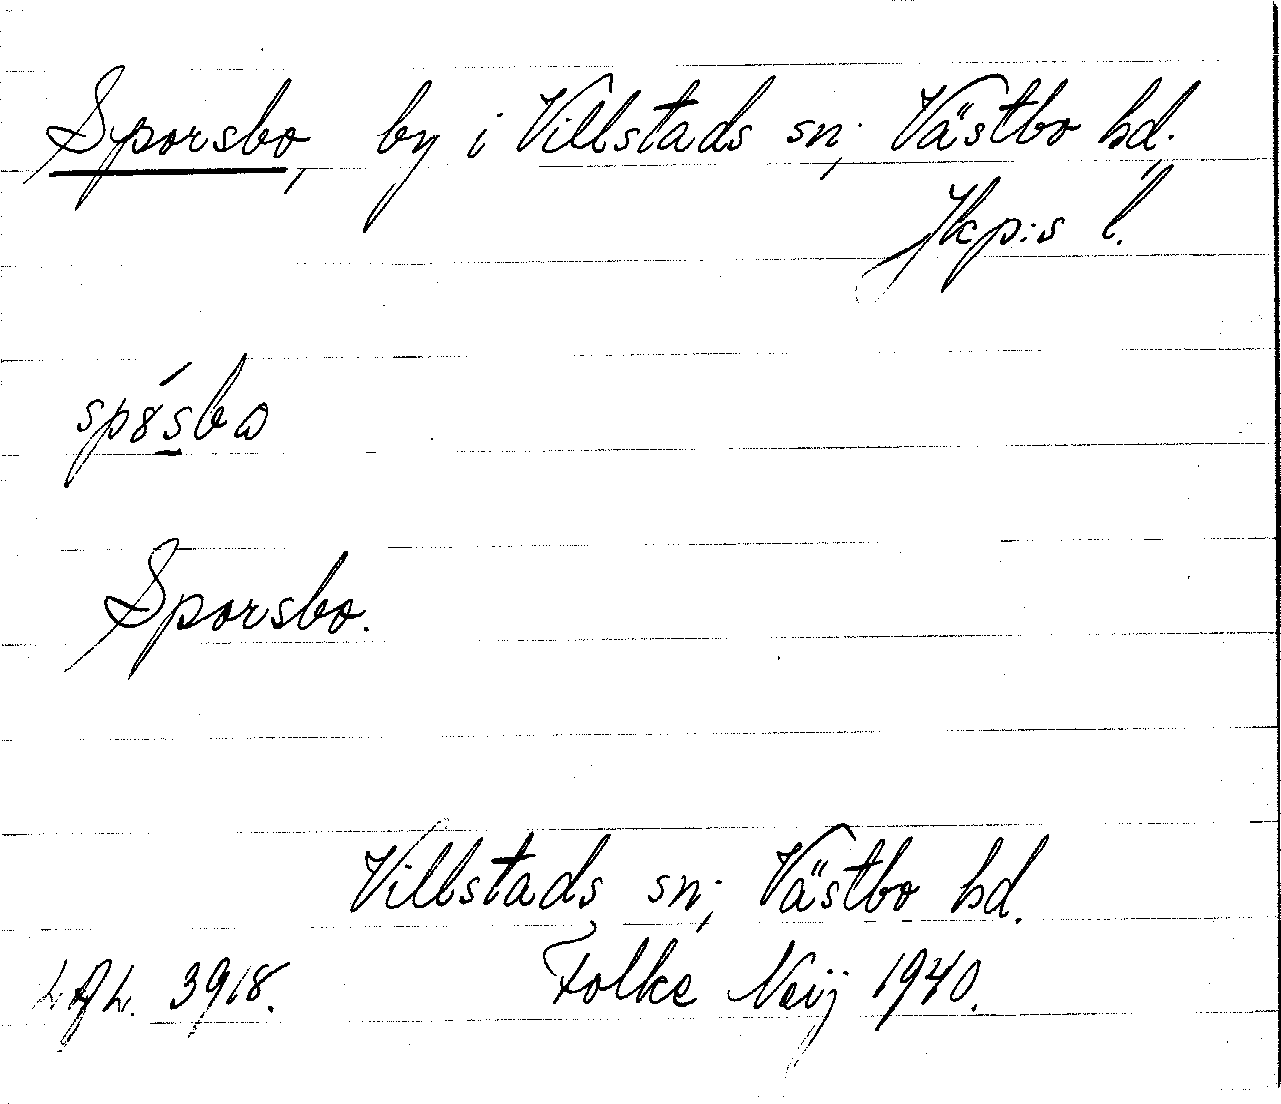 Sporsbo, by i Villstads sn; Västbo hd.,
Jkp:s l.
Sporsbo.
Villstads sn; Västbo hd.
3918. Folke Neij 1940.